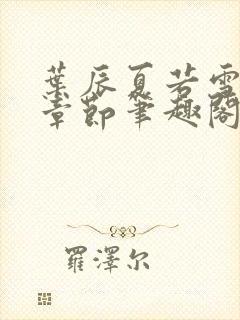 葉辰夏若雪
章節筆趣閣
羅澤尔